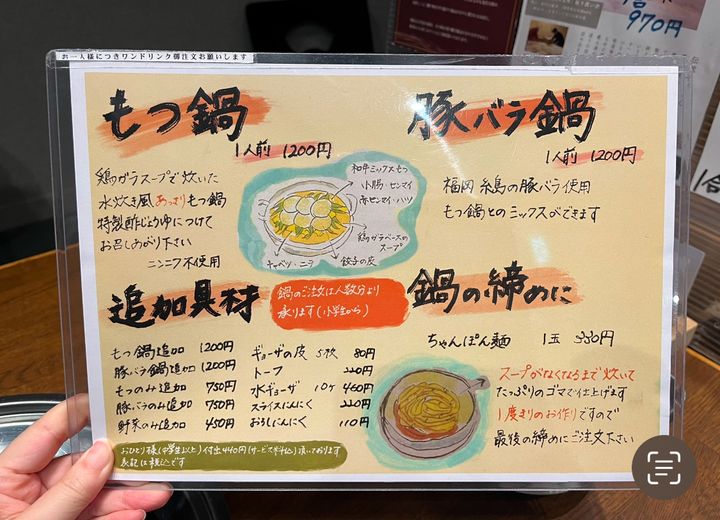 お一人様につきワンドリンク御注文お願いします
970円
もつ鍋
1人前 1200円
鶏ガラスープで炊いた
水炊き風あっさりもつ鍋
特製酢じょうゆにつけて
お召しあがり下さい
ニンニク不使用
和牛ミックスもつ
小腸・センマイ
赤センマイ・ハツ
鶏ガラベースの
スープ
キャベツ・ニラ
餃子の皮
豚バラ鍋
1人前 1200円
福岡 糸島の豚バラ使用
もつ鍋とのミックスができます
追加具材
鍋のご注文は人数分より
承ります(小学生から)
もつ鍋追加 1200円
豚バラ鍋追加 1200円
もつのみ追加 750円
豚バラのみ追加 750円
野菜のみ追加 450円
ギョーザの皮 5枚 80円
トーフ 220円
水ギョーザ 10ケ 460円
スライスにんにく 220円
おろしにんにく 110円
おひとり様(中学生以上)付出440円(サービス料込)頂いております
表記は税込です
鍋の締めに
ちゃんぽん麺 1玉 330円
スープがなくなるまで炊いて
たっぷりのゴマで仕上げます
1度きりのお作りですので
最後の締めにご注文下さい